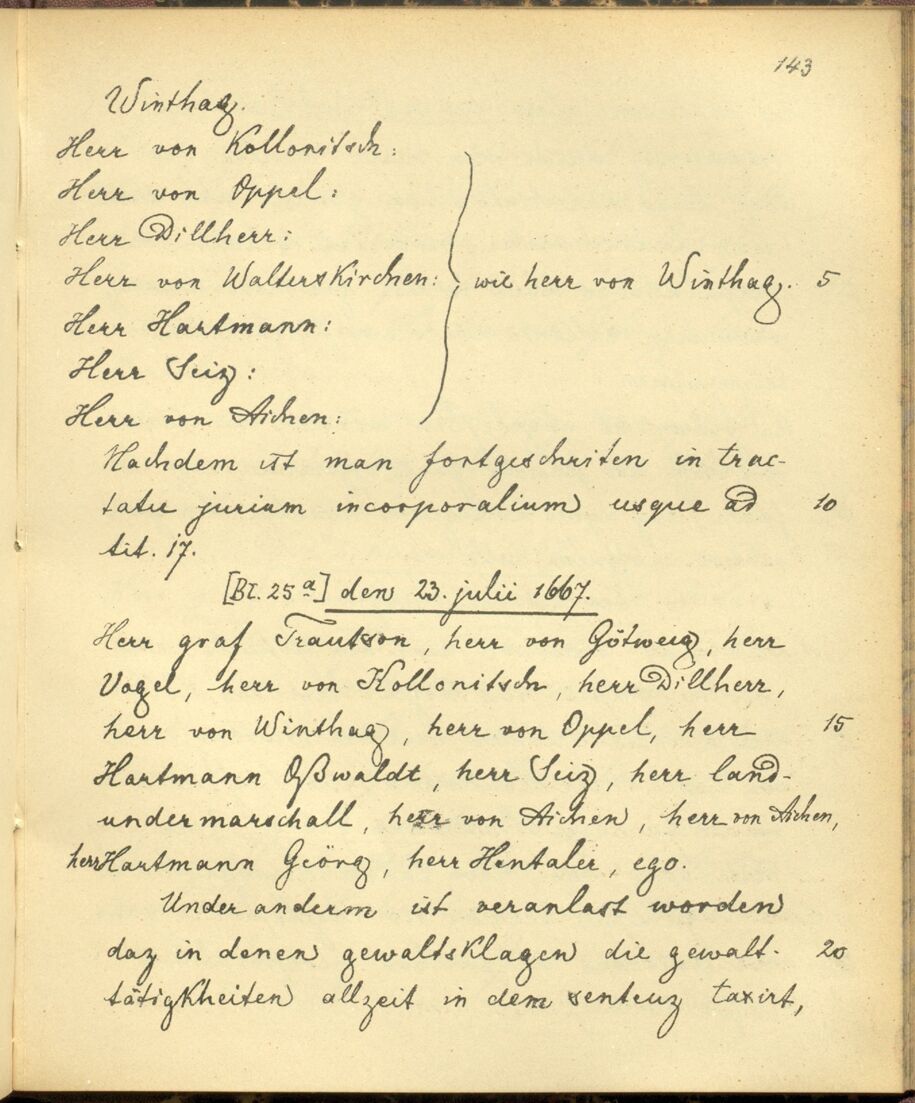 143
Winthag.
Herr von Kollonitsch:
Herr von Oppel:
Herr Dillherr:
Herr von Walterskirchen: wie herr von Winthag. 5
Herr Hartmann:
Herr Seiz:
Herr von Aichen:
Nachdem ist man fortgeschriten in trac-
tatu jurium incorporalium usque ad 10
tit. 17.
[Bl. 25a] den 23. julii 1667.
Herr graf Trautson, herr von Götweig, herr
Vogel, herr von Kollonitsch, herr Dillherr,
herr von Winthag, herr von Oppel, herr 15
Hartmann Oßwaldt, herr Seiz, herr land-
undermarschall, herr von Aichen, herr von Aichen,
herr Hartmann Geörg, herr Hentaler, ego.
Under anderm ist veranlast worden
daz in denen gewaltsklagen die gewalt- 20
tätigkheiten allzeit in dem sentenz taxirt,